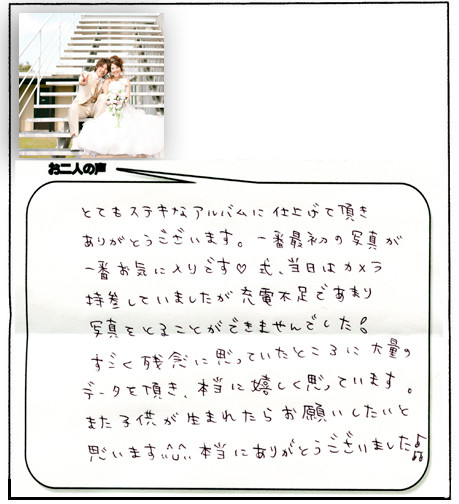 お二人の声
とてもステキなアルバムに仕上げて頂き
ありがとうございます。一番最初の写真が
一番お気に入りです♡ 式、当日はカメラ
持参していましたが充電不足であまり
写真をとることができませんでした!
すごく残念に思っていたところに大量の
データを頂き、本当に嬉しく思っています。
また子供が生まれたらお願いしたいと
思います^^ 本当にありがとうございました♪♫